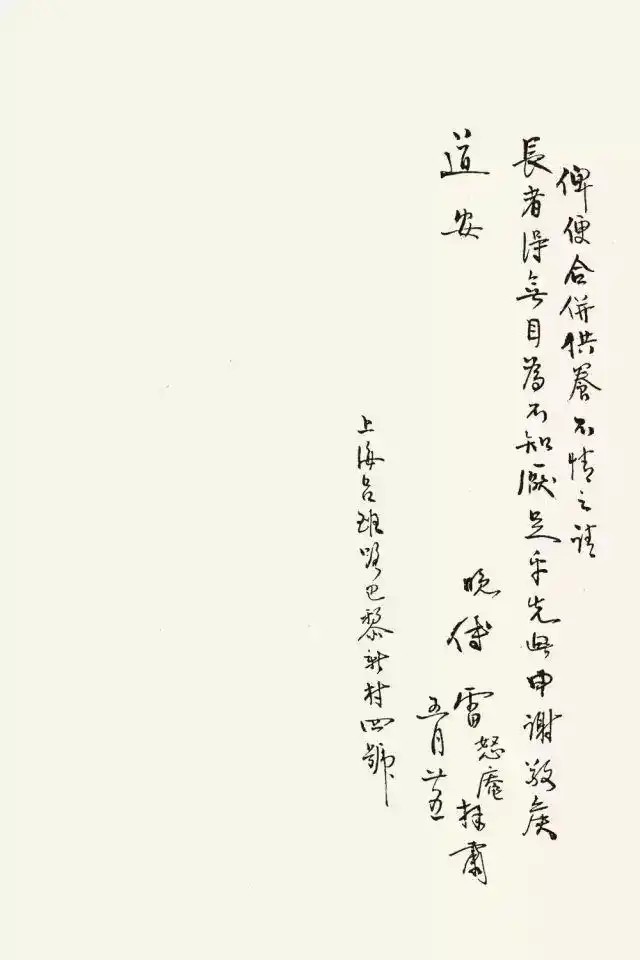 俾便合併供養不情之請
長者得無目為不知厭足乎先此申謝敬矦
道安
晚傅雷怒庵拜肅
五月廿五
上海呂班路巴黎新村四號